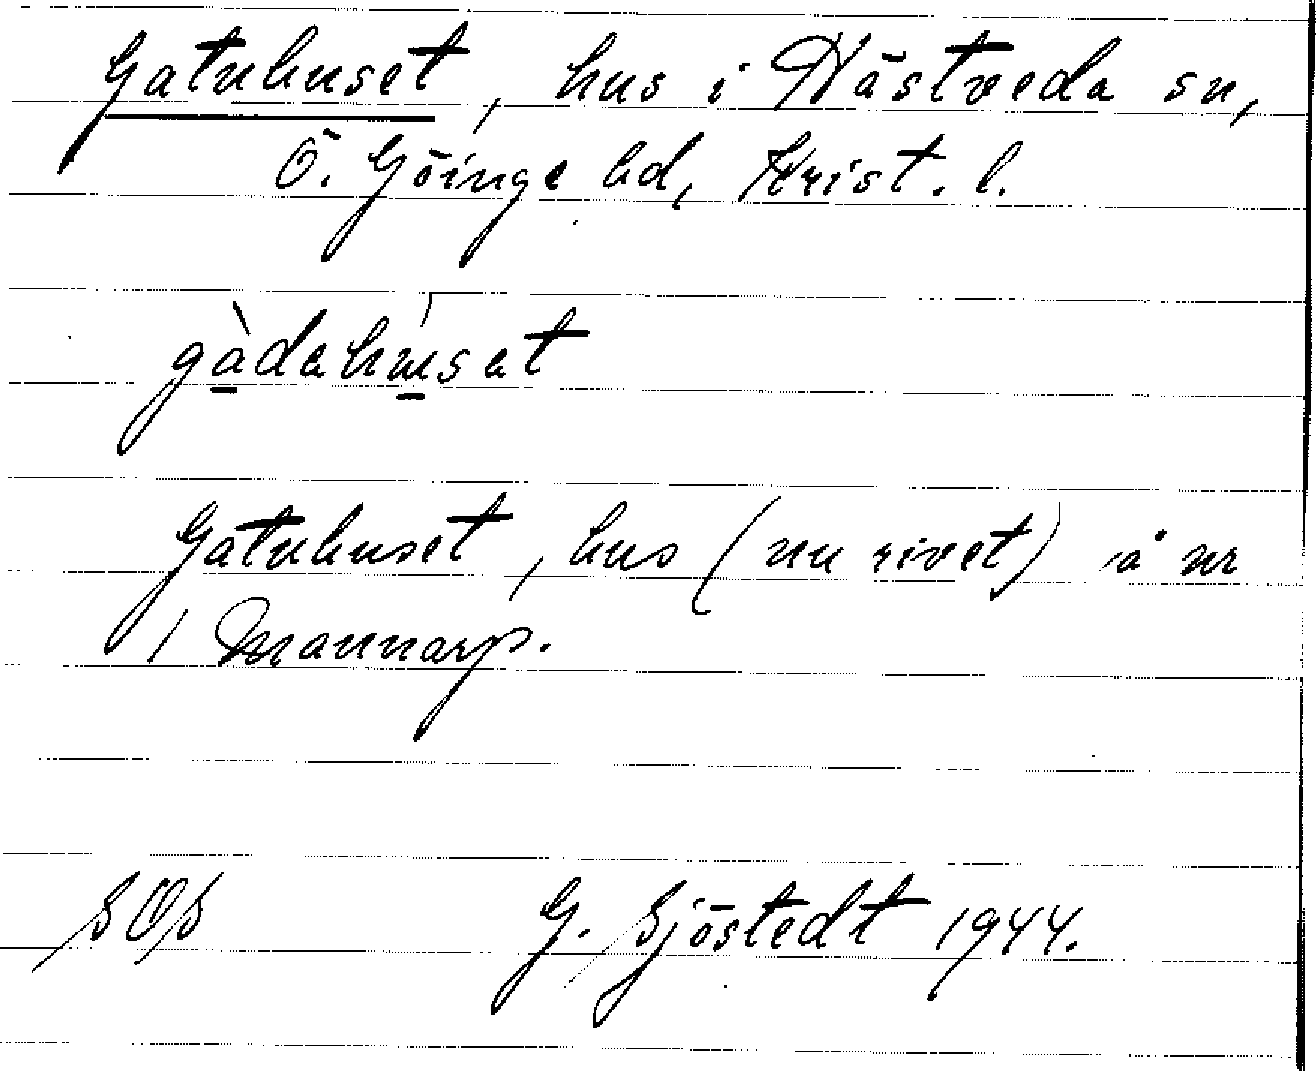 Gatuhuset, hus i Hästveda sn,
Ö. Göinge hd, Krist. l.
gàdahúsat
Gatuhuset, hus (nu rivet) å nr
1 Mannarp.
SOS G. Sjöstedt 1944.